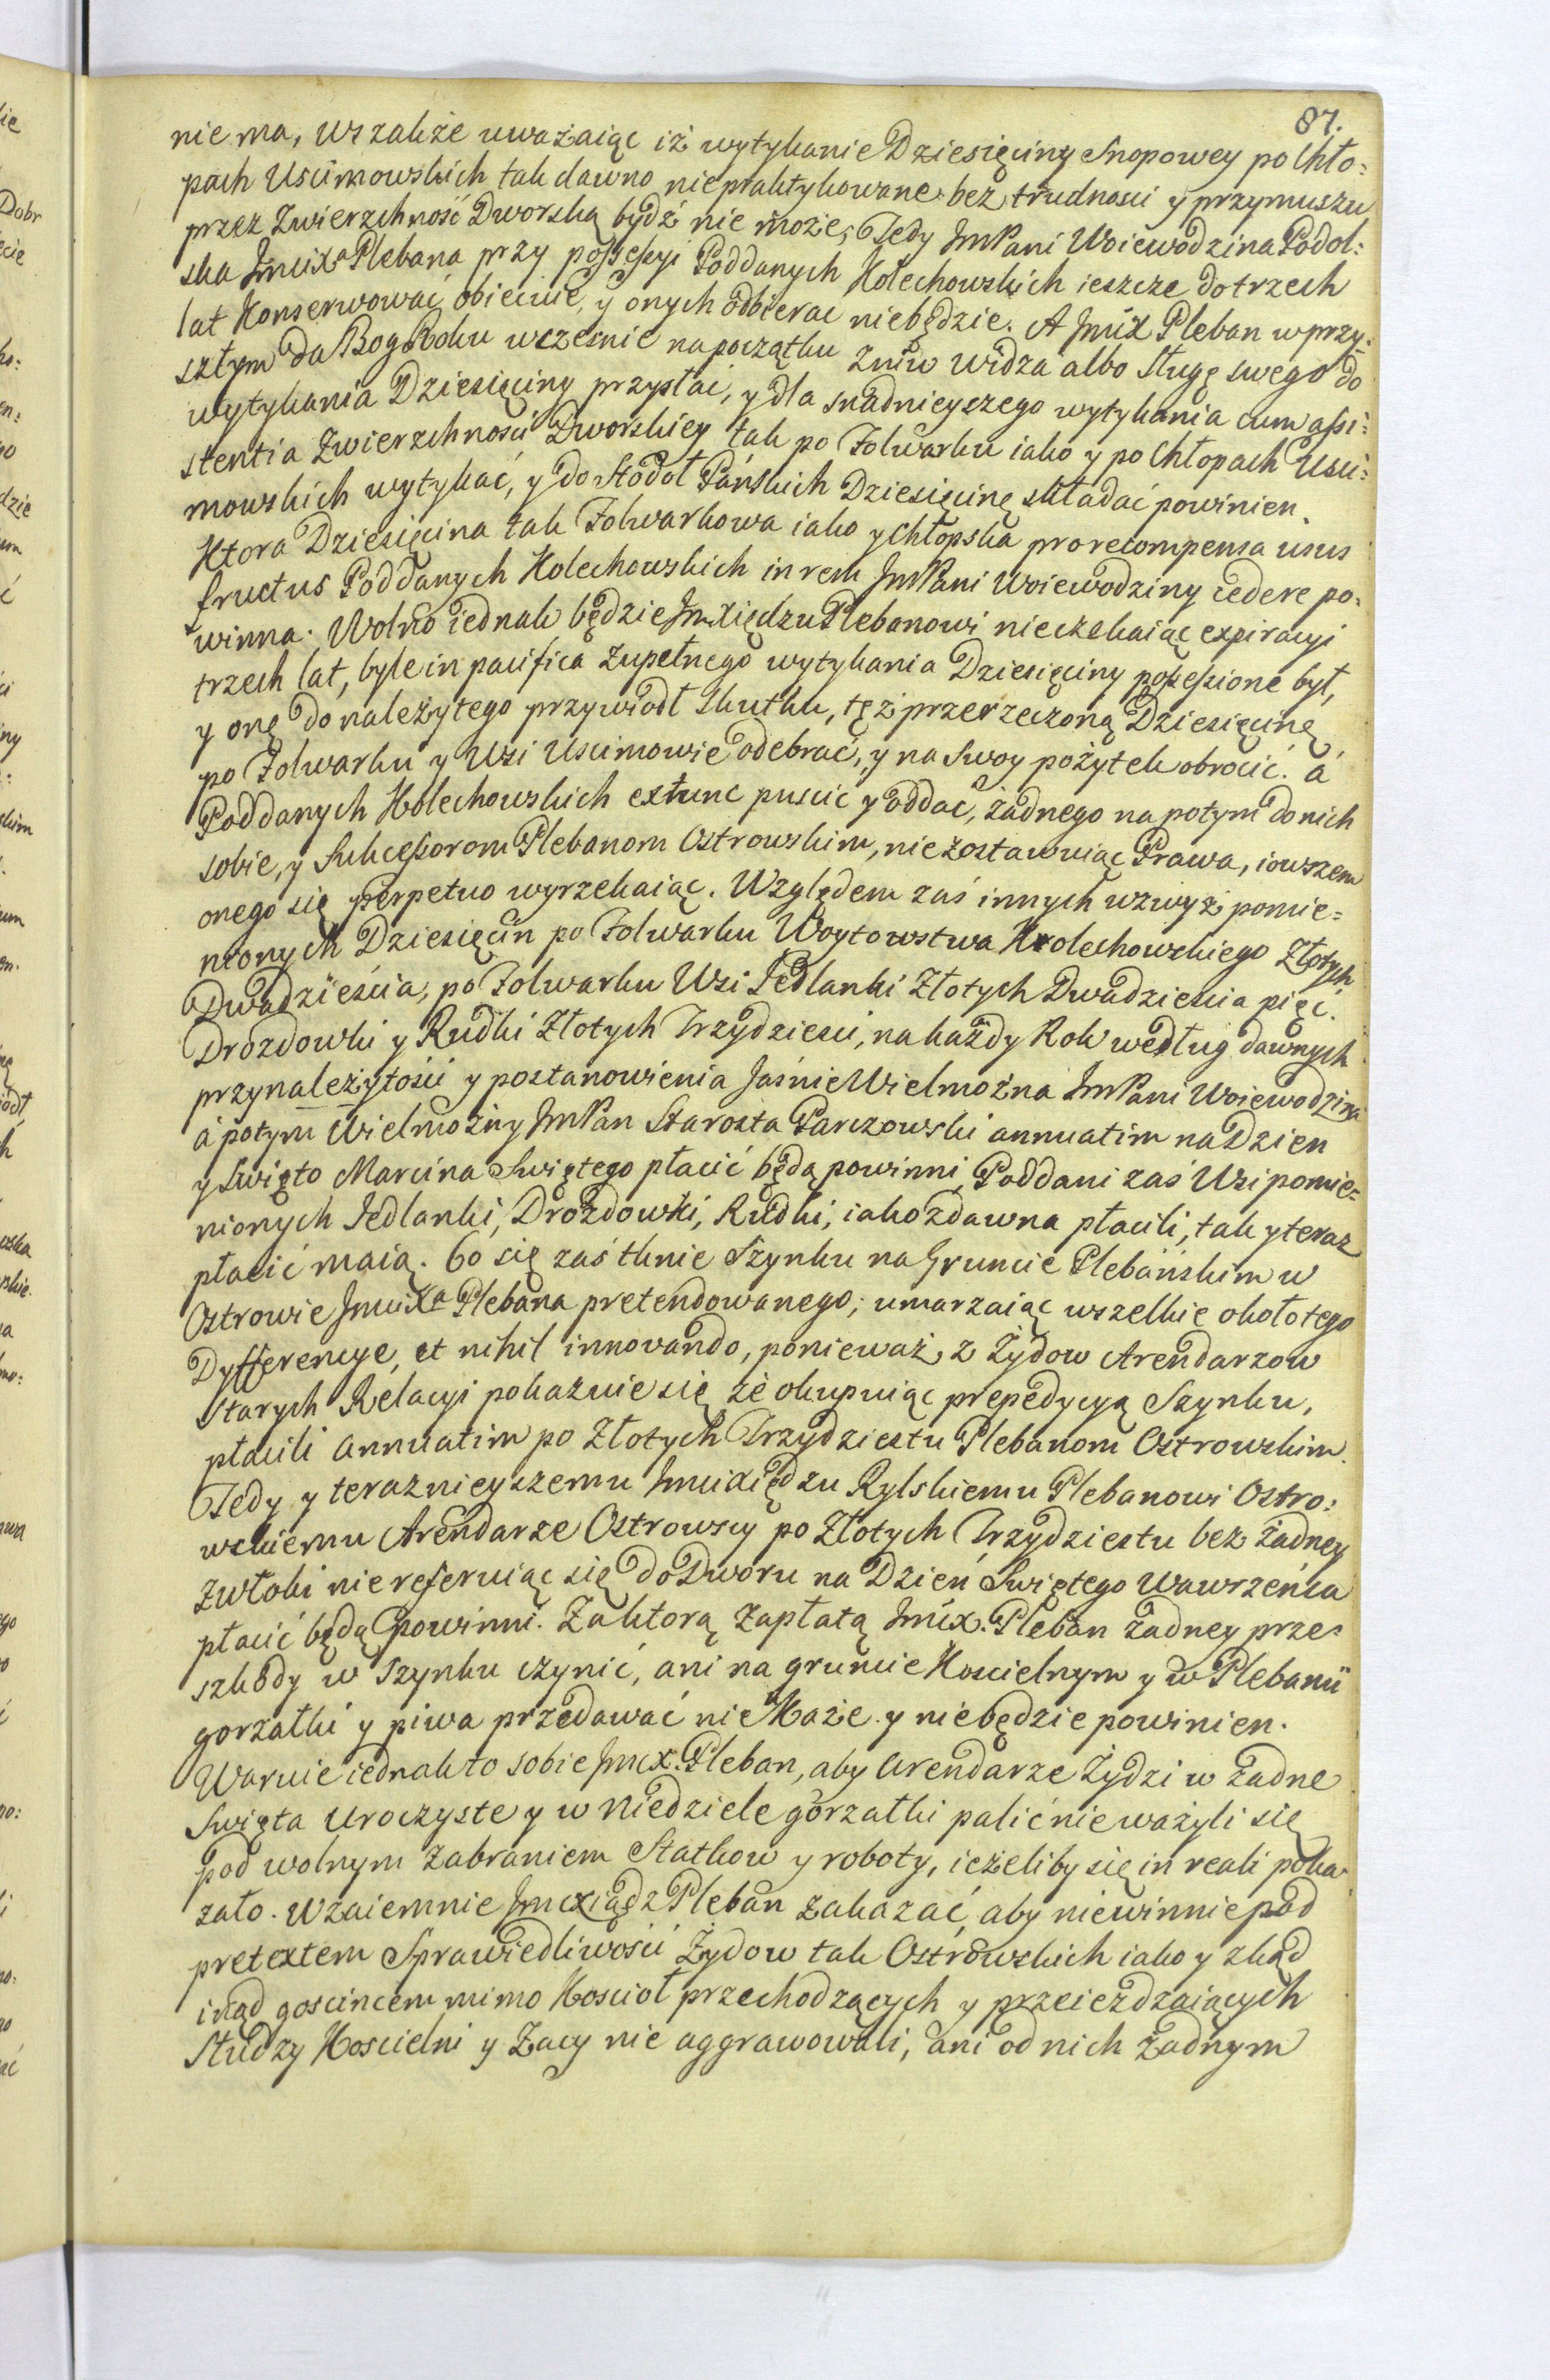 87.
nie ma, wszakże uważaiąc iż wytykanie Dziesięciny Snopowey po Chło:
pach Uscimowskich tak dawno niepraktykowane bez trudnosci y przymuszu
przez Zwierzchność Dworską bydź nie może; Tedy ImPani Woiewodzina Podol:
ska Jmcixa Plebana przy possessyi Poddanych Kolechowskich ieszcze do trzech
lat Konserwować obiecuie, y onych odbierac niebędzie. A Jmcix Pleban w przy:
szłym da Bog Roku wczesnie na początku Zniw widza albo Sługę swego do
wytykania Dziesięciny przysłać, y dla snadnieyszego wytykania cum assi:
stentia Zwierzchności Dworskiey tak po Folwarku iako y po Chłopach Usci:
mowskich wytykać, y do Stodoł Pańskich Dziesięcinę składać powinien.
Ktora Dziesięcina tak Folwarkowa iako y Chłopska pro recompensa usus
fructus Poddanych Kolechowskich in rem ImPani Woiewodziny cedere po:
winna. Wolno iednak będzie Jm Xiędzu Plebanowi nieczekaiąc expiracyi
trzech lat, byle in pacifica zupełnego wytykania Dziesięciny possessione był,
y onę do należytego przywiodł skutku, tęż przerzeczoną Dziesięcinę
po Folwarku y Wsi Uscimowie odebrać, y na Swoy pożytek obrocić. á
Poddanych Kolechowskich extunc puscić y oddać, żadnego na potym do nich
sobie, y Sukcessorom Plebanom Ostrowskim, nie zostawuiąc Prawa, iowszem
onego się perpetuo wyrzekaiąc. Względem zaś innych wzwyż pomie=
nionych Dziesięcin po Folwarku Woytowstwa Kolechowskiego Złotych
Dwadzieścia, po Folwarku Wsi Jedlanki Złotych Dwadziescia pięć.
Drozdowki y Rudki Złotych Trzydziesci, na każdy Rok według dawnych
przynależytości y postanowienia Jaśnie Wielmożna ImPani Woiewodzina
á potym Wielmożny ImPan Starosta Parczowski annuatim na Dzien
y Swięto Marcina Swiętego płacić będą powinni, Poddani zaś Wsi pomie=
nionych Jedlanki, Drozdowki, Rudki, iako zdawna płacili, tak y teraz
płacić maią. Co się zaś tknie Szynku na Gruncie Plebańskim w
Ostrowie Jmcixa Plebana pretendowanego; umarzaiąc wszelkie około tego
Dyfferencye, et nihil innovando, ponieważ z Żydow Arendarzow
Starych Relacyi pokazuie się że okupuiąc prepedycyą Szynku,
płacili annuatim po Złotych Trzydziestu Plebanom Ostrowskim.
Tedy y teraznieyszemu Jmcixiędzu Rylskiemu Plebanowi Ostro:
wskiemu Arendarze Ostrowscy po Złotych Trzydziestu bez żadney
zwłoki nie referuiąc się do Dworu na Dzień Swiętego Wawrzeńca
płacić będą powinni. Za ktorą zapłatą Jmcix. Pleban żadney prze=
szkody w Szynku czynić, ani na gruncie Koscielnym y w Plebanii
gorzałki y piwa przedawać nie Każe y niebędzie powinien.
Waruie iednak to sobie Jmcx. Pleban, aby Arendarze Żydzi w żadne
Swięta Uroczyste y w Niedziele gorzałki palić nie ważyli się
pod wolnym zabraniem Statkow y roboty, ieżeliby się in reali poka
zało. Wzaiemnie Jmcxiądz Pleban zakazać, aby niewinnie pod
pretextem Sprawiedliwości Żydow tak Ostrowskich iako y zkąd
inąd goscincem mimo Kosciół przechodzących y przeieżdzaiących
Słudzy Koscielni y Żacy nie aggrawowali, ani od nich żadnym